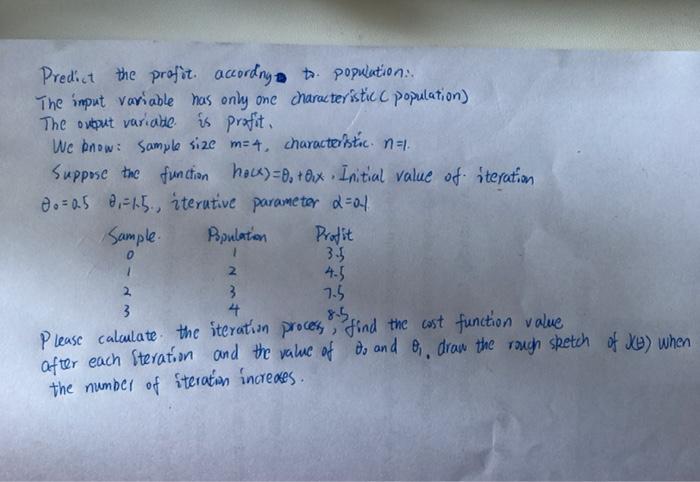 Predict the profit. according to. population:.
The input variable has only one characteristic ( population)
The output variable. is profit.
We know: Sample size m=4, characteristic. n=1.
Suppose the function hθ(x)=θ₀+θ₁x. Initial value of iteration
θ₀=0.5 θ₁=1.5., iterative parameter α=0.1
Sample. Population Profit
0 1 3.5
1 2 4.5
2 3 7.5
3 4 8.5
Please calculate the iteration process, find the cost function value
after each iteration and the value of θ₀ and θ₁, draw the rough sketch of J(θ) when
the number of iteration increases.